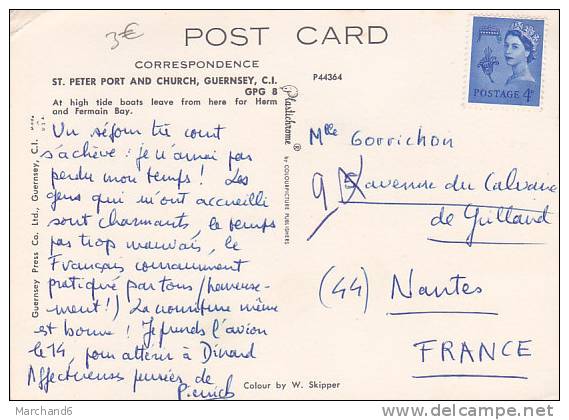 3€
POST CARD
CORRESPONDENCE
ST. PETER PORT AND CHURCH, GUERNSEY, C.I.
GPG 8
P44364
At high tide boats leave from here for Herm
and Fermain Bay.
POSTAGE 4D
Un séjour très court
s'achève : je n'aurai pas
perdu mon temps ! Les
gens qui m'ont accueilli
sont charmants, le temps
pas trop mauvais, le
Français couramment
pratiqué par tous (heureuse-
ment !) La nourriture même
est bonne ! Je prends l'avion
le 14, pour atterrir à Dinard
Affectueuses pensées de
Pierrick
Melle Gorrichon
9, avenue du Calvaire
de Grilland
(44) Nantes
FRANCE
Guernsey Press Co. Ltd., Guernsey, C.I.
MADE
U.S.A.
Plastichrome ®
by COLOURPICTURE PUBLISHERS
Colour by W. Skipper
Marchand6
www.delcampe.net